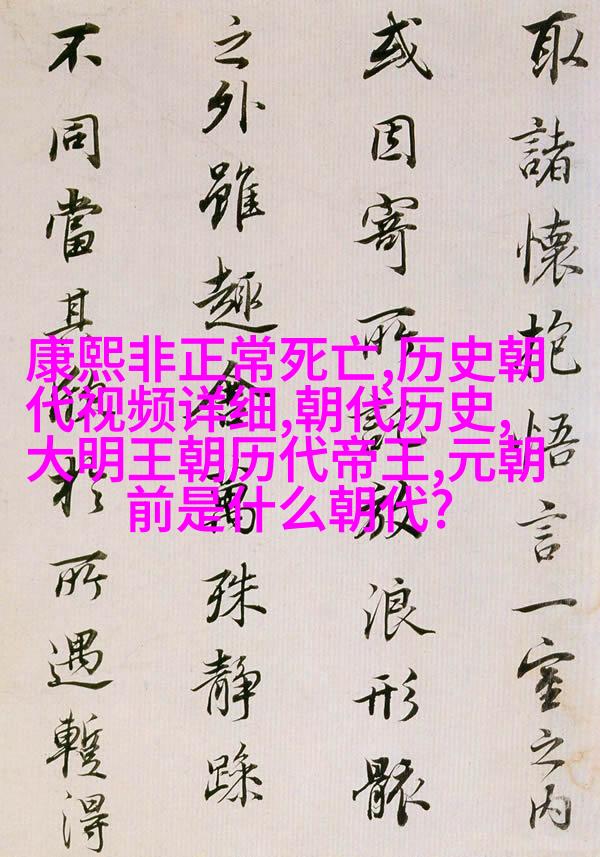 康熙非正常死亡,历史朝
代视频详细,朝代历史,
大明王朝历代帝王,元朝
前是什么朝代?
取諸懷抱悟言一室之内
或因寄所託放浪形骸
之外雖趣舍萬殊靜躁
不同當其欣於所遇蹔得